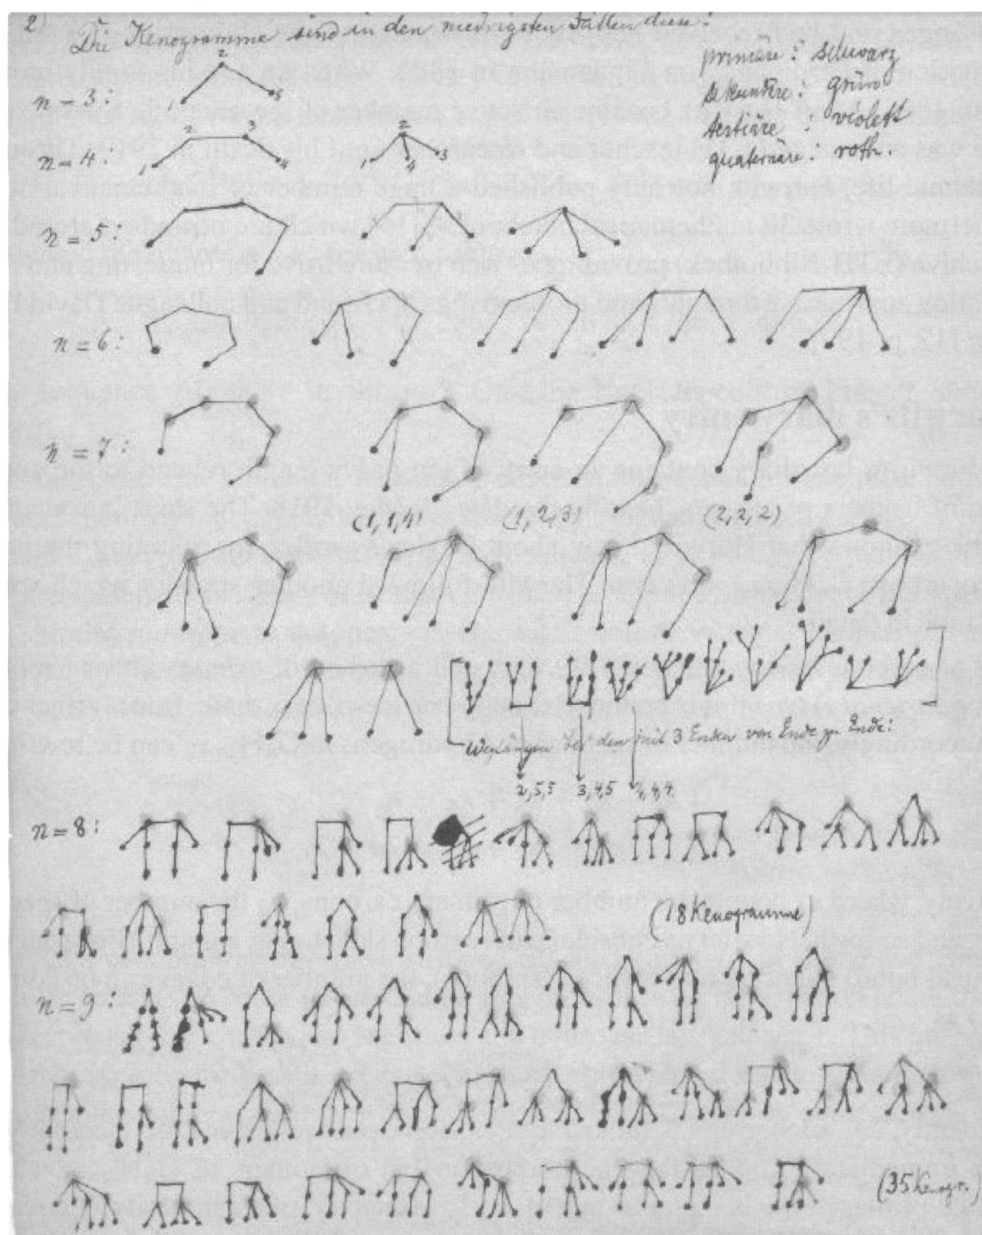 2)
Die Kenogramme sind in den niedrigsten Fällen diese:
primäre: schwarz
sekundäre: grün
tertiäre: violett
quaternäre: roth.
n = 3:
1 2 3
n = 4:
1 2 3 4
1 2 3 4
n = 5:
n = 6:
n = 7:
(1, 1, 4) (1, 2, 3) (2, 2, 2)
bei den mit 3 Enden von Ende zu Ende:
2,5,5 3,4,5 4,4,4
n = 8:
(18 Kenogramme)
n = 9:
(35 Kenogr.)